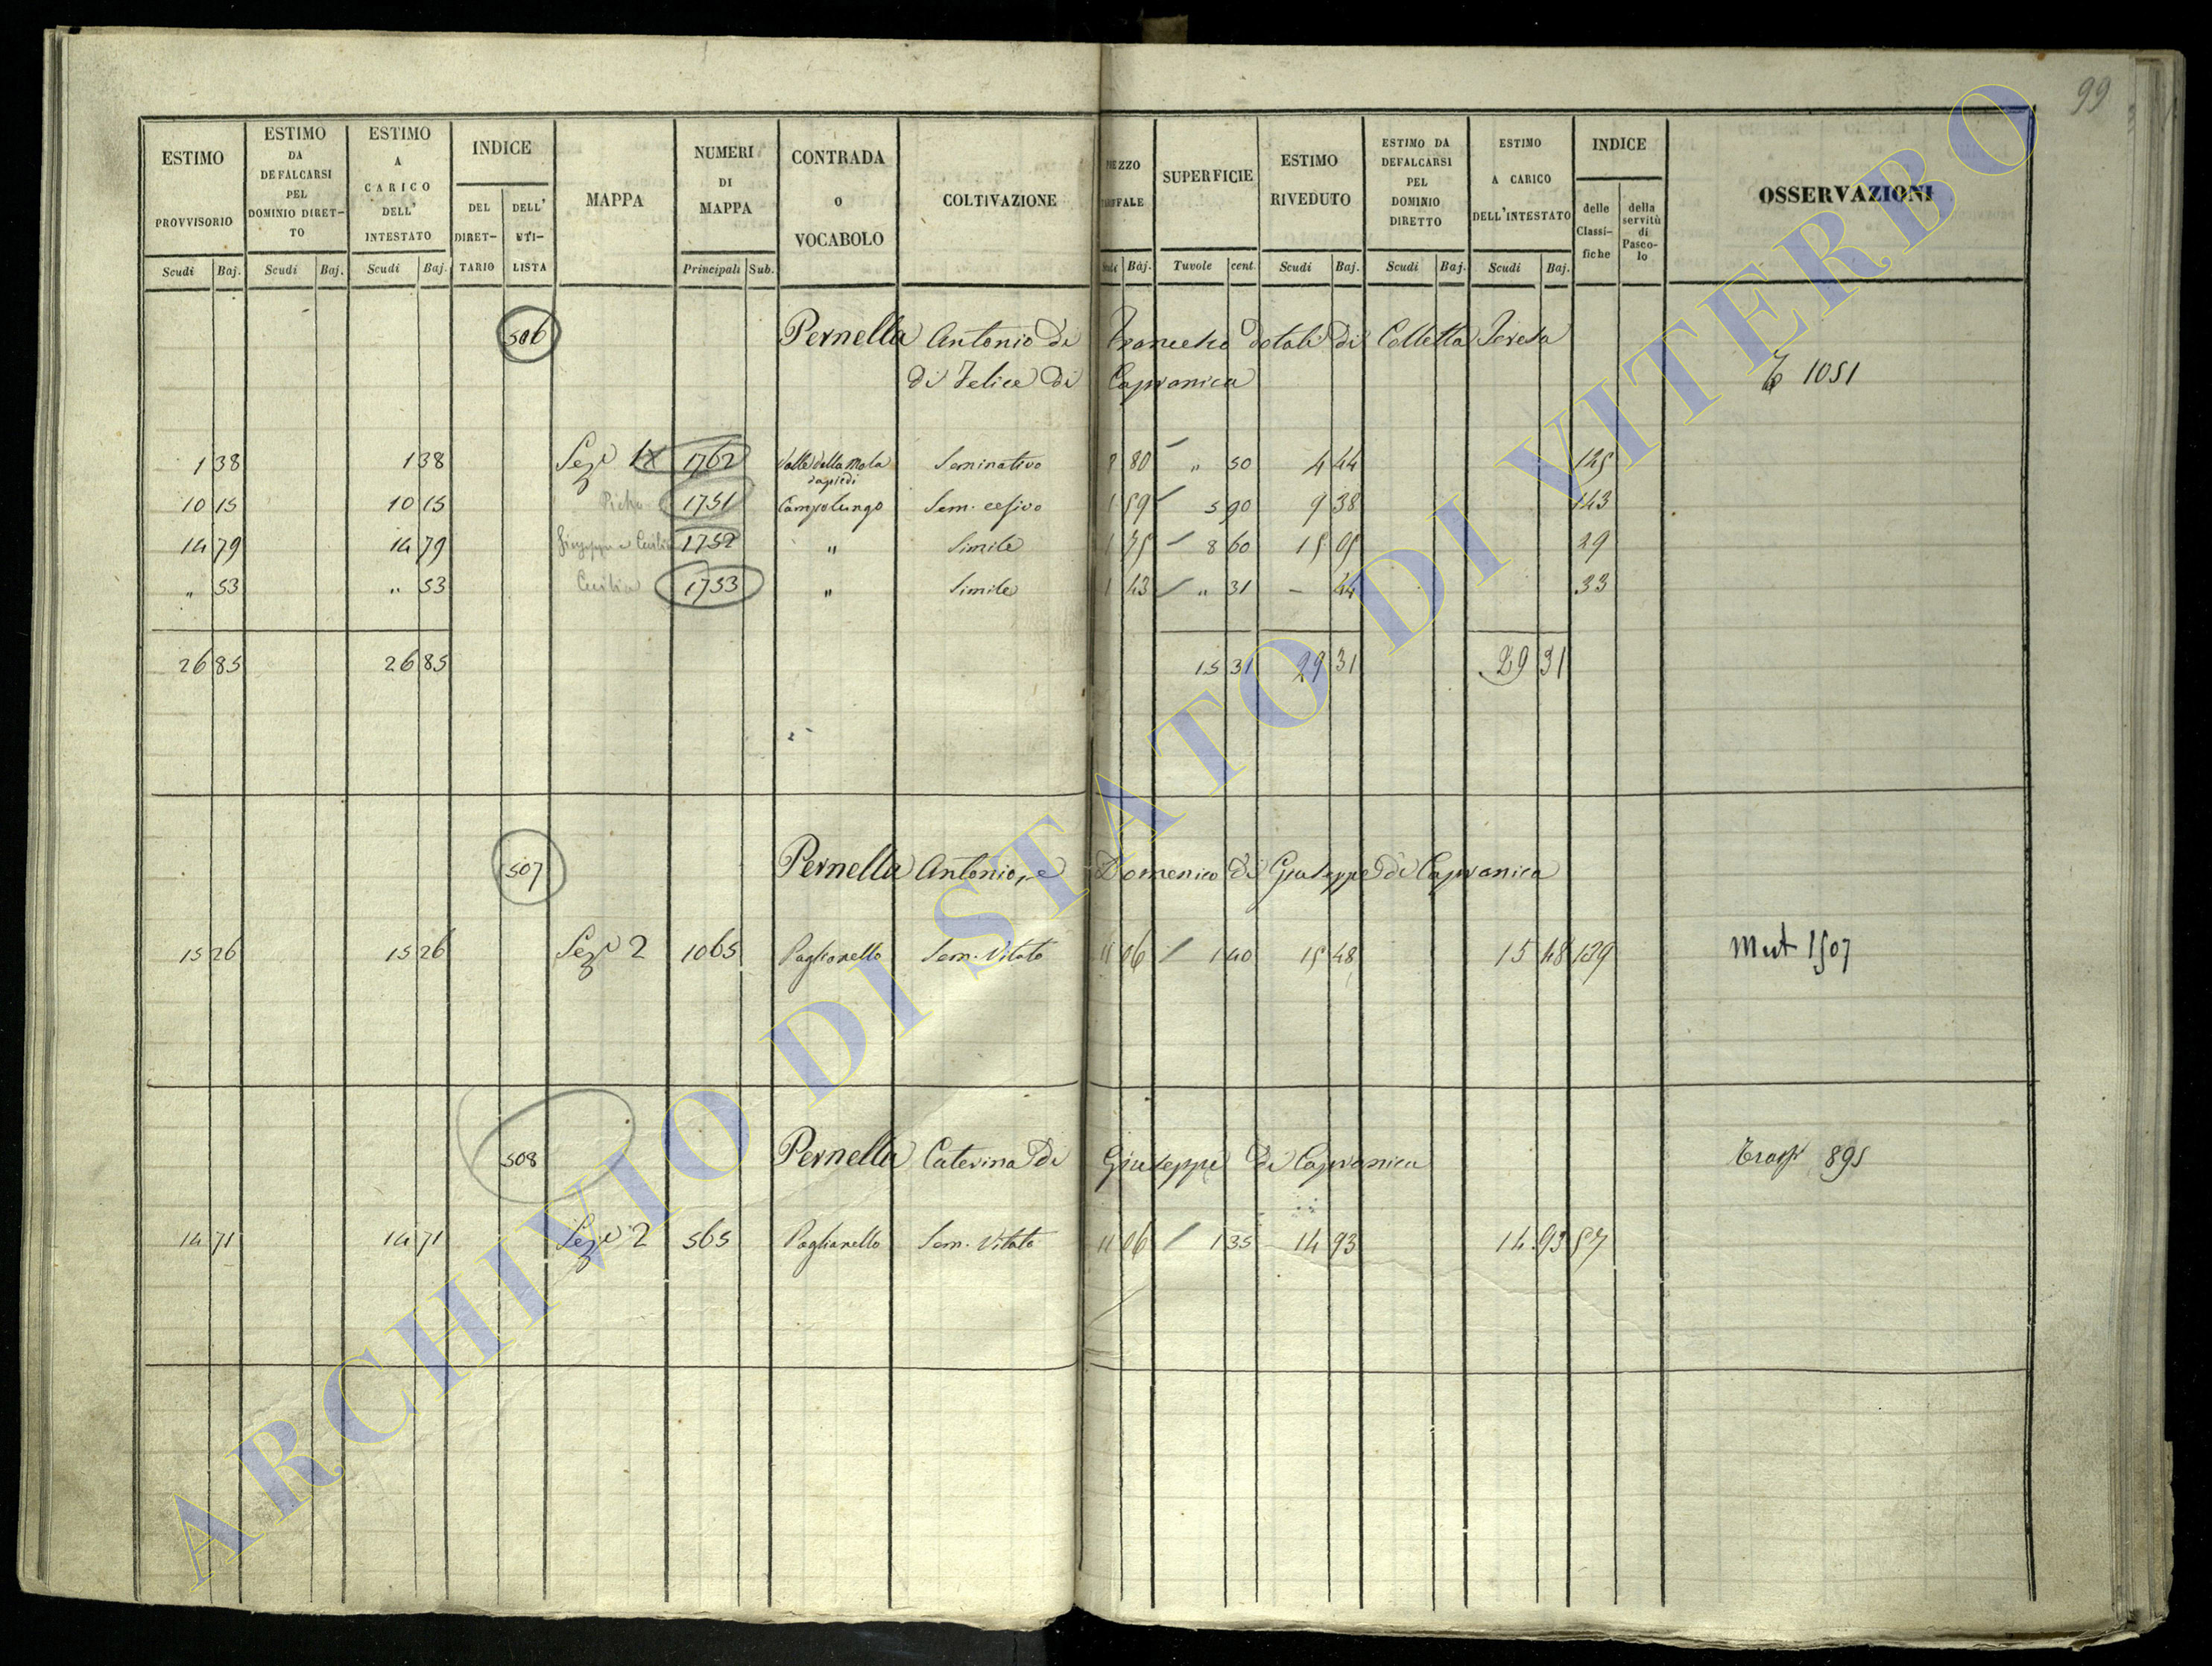 99
ESTIMO PROVVISORIO Scudi Baj.
ESTIMO DA DEFALCARSI PEL DOMINIO DIRETTO Scudi Baj.
ESTIMO A CARICO DELL' INTESTATO Scudi Baj.
INDICE DEL DIRETTARIO DELL' UTILISTA
MAPPA
NUMERI DI MAPPA Principali Sub.
CONTRADA O VOCABOLO
COLTIVAZIONE
SUPERFICIE Tavole cent.
ESTIMO RIVEDUTO Scudi Baj.
ESTIMO DA DEFALCARSI PEL DOMINIO DIRETTO Scudi Baj.
ESTIMO A CARICO DELL'INTESTATO Scudi Baj.
INDICE delle Classifiche della servitù di Pascolo
OSSERVAZIONI
506 Pernella Antonio di Francesco dotali di Colletta Teresa
di Felice di Capranica 1051
1 38 1 38 Sez.e 1762 Valle della Mola Seminativo 8 80 " 50 4 44 125
da piedi
10 15 10 15 1751 Campolungo Sem. 1 59 5 90 9 38 143
14 79 14 79 Giuseppe e Cecilia 1752 " Simile 1 75 8 60 15 05 29
" 53 " 53 Cecilia 1753 " Simile 1 43 " 31 – 44 33
26 85 26 85 15 31 29 31 29 31
507 Pernella Antonio, e Domenico di Giuseppe di Capranica
15 26 15 26 Sez.e 2 1065 Paglianello Sem. Vitato 11 06 1 40 15 48 15 48 139 Mut 1507
508 Pernella Caterina di Giuseppe di Capranica 895
14 71 14 71 Sez.e 2 565 Paglianello Sem. Vitato 11 06 1 35 14 93 14 93 57
ARCHIVIO DI STATO DI VITERBO